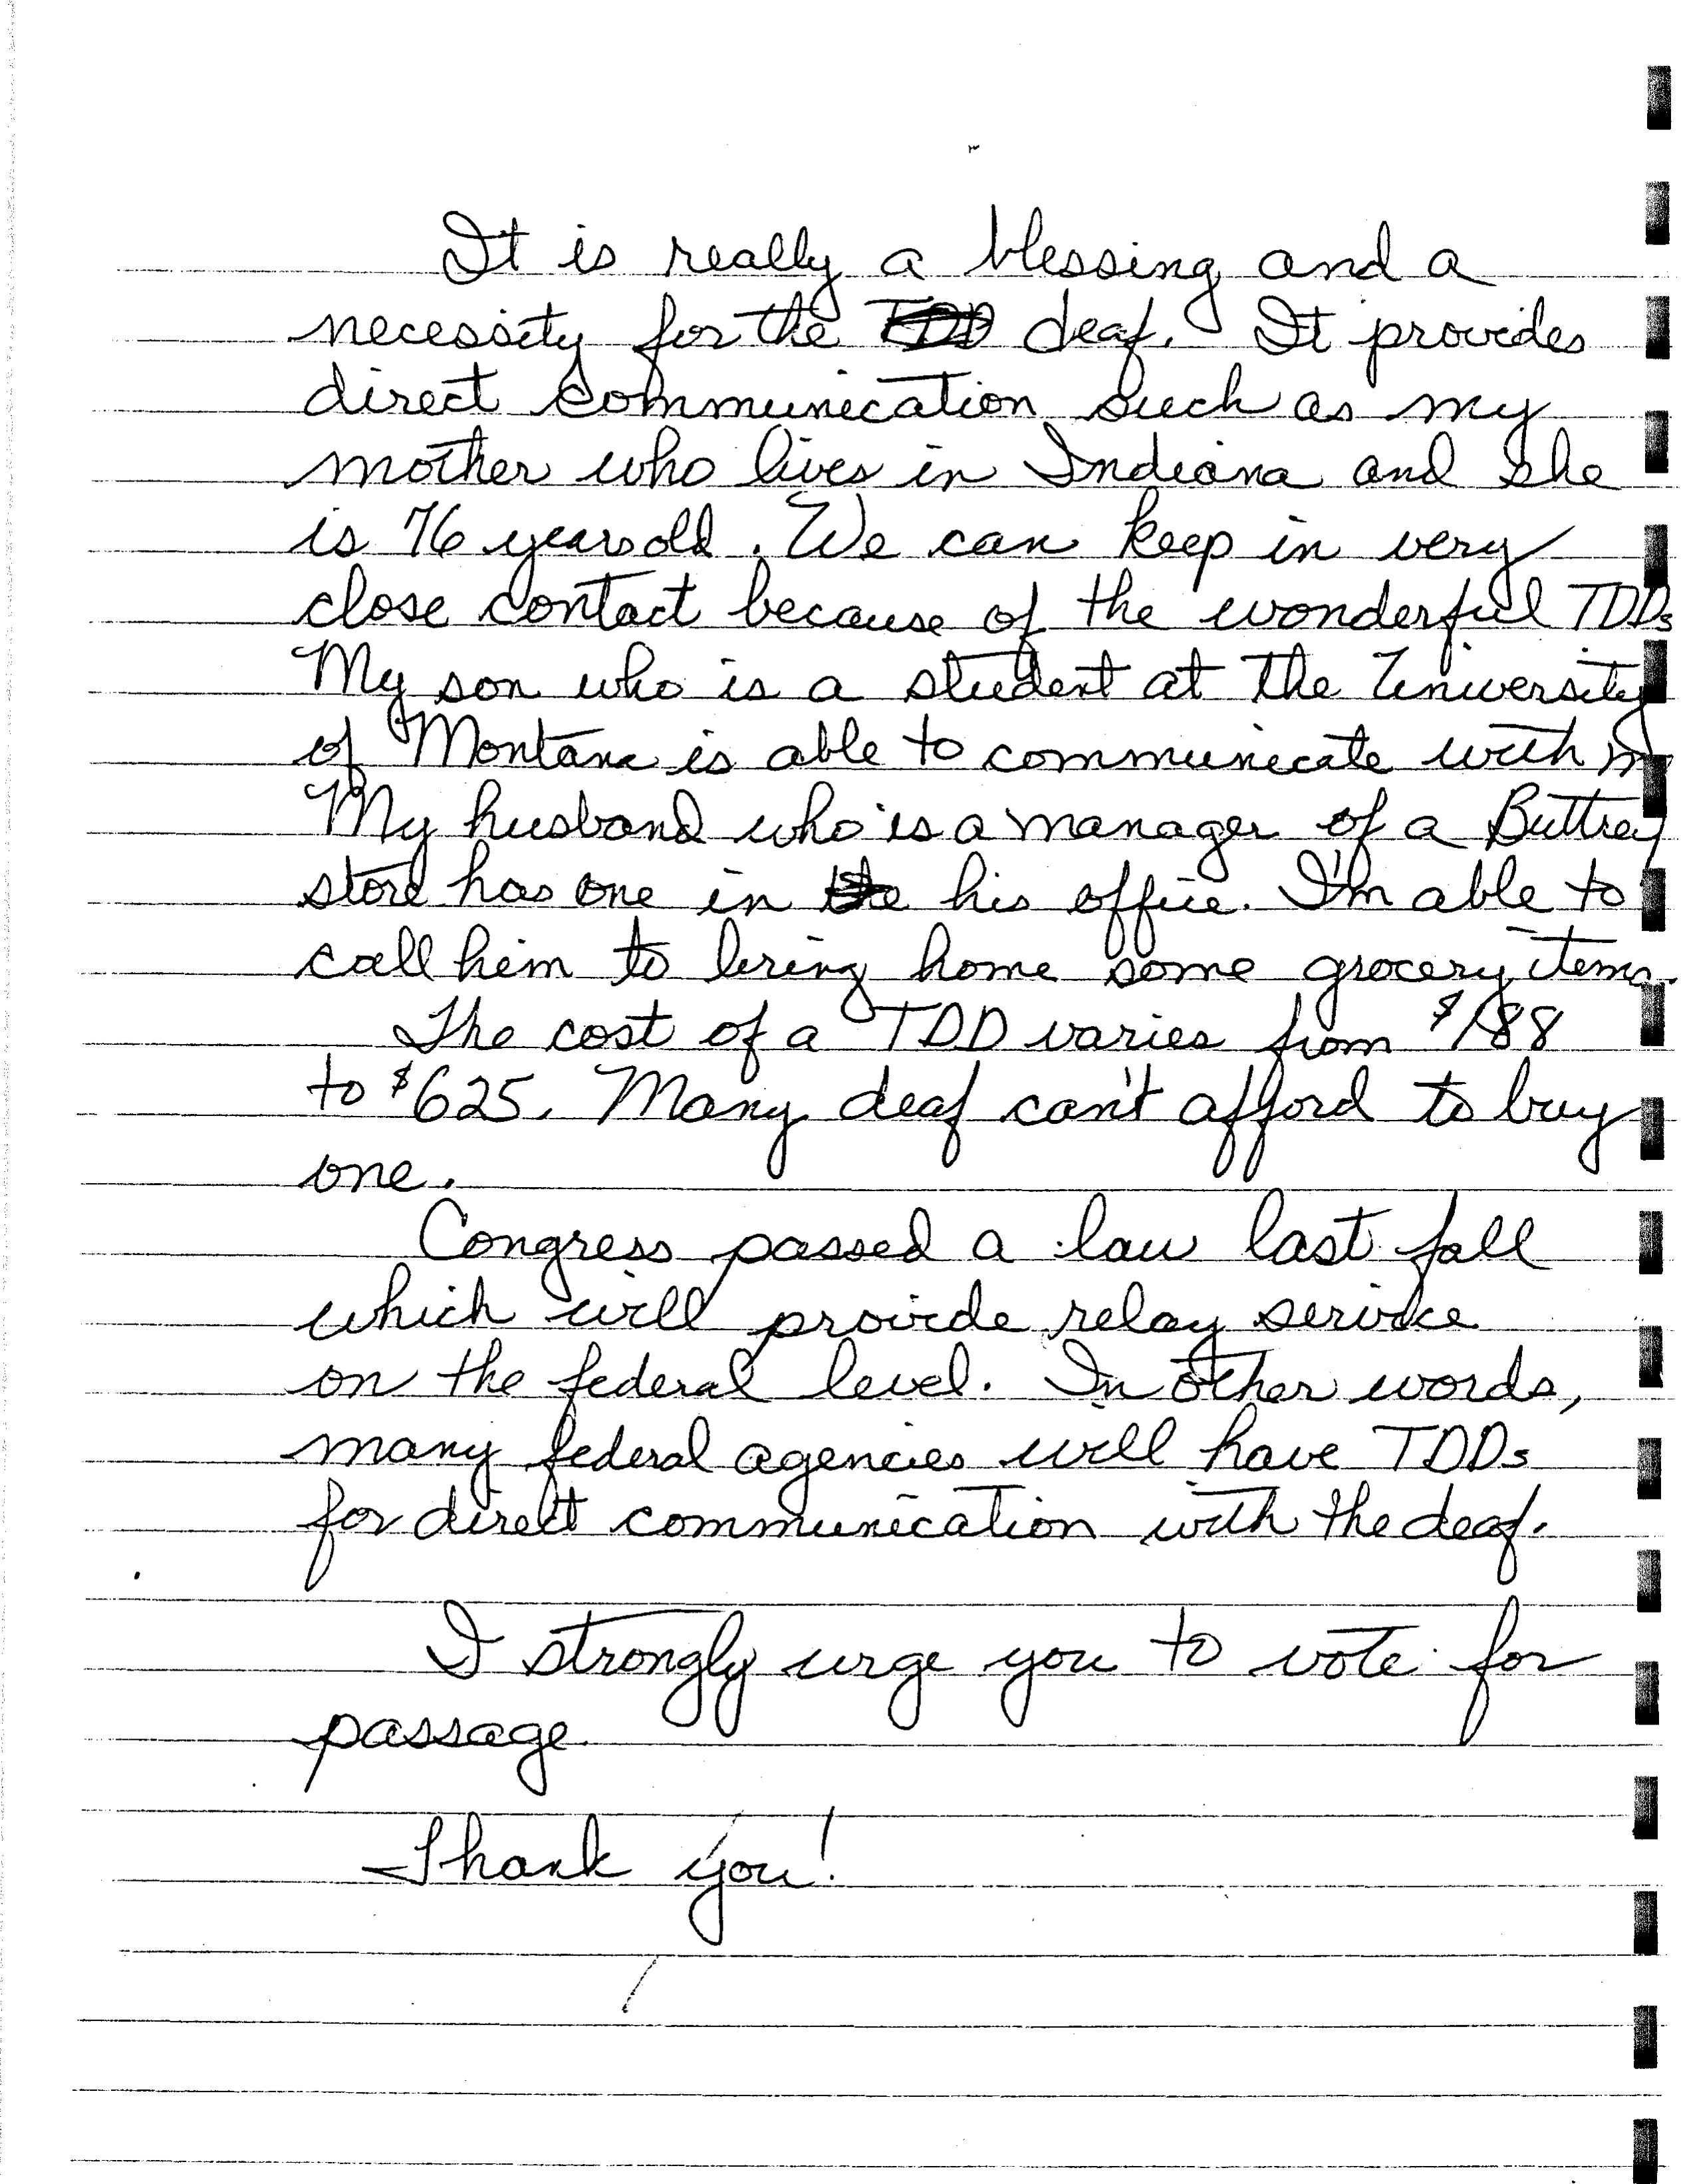 It is really a blessing and a
necessity for the TDD deaf. It provides
direct communication such as my
mother who lives in Indiana and she
is 76 years old. We can keep in very
close contact because of the wonderful TDDs
My son who is a student at the University
of Montana is able to communicate with
My husband who is a manager of a Buttrey
store has one in the his office. I'm able to
call him to bring home some grocery items.
The cost of a TDD varies from $188
to $625. Many deaf can't afford to buy
one.
Congress passed a law last fall
which will provide relay service
on the federal level. In other words,
many federal agencies will have TDDs
for direct communication with the deaf.
I strongly urge you to vote for
passage.
Thank you!